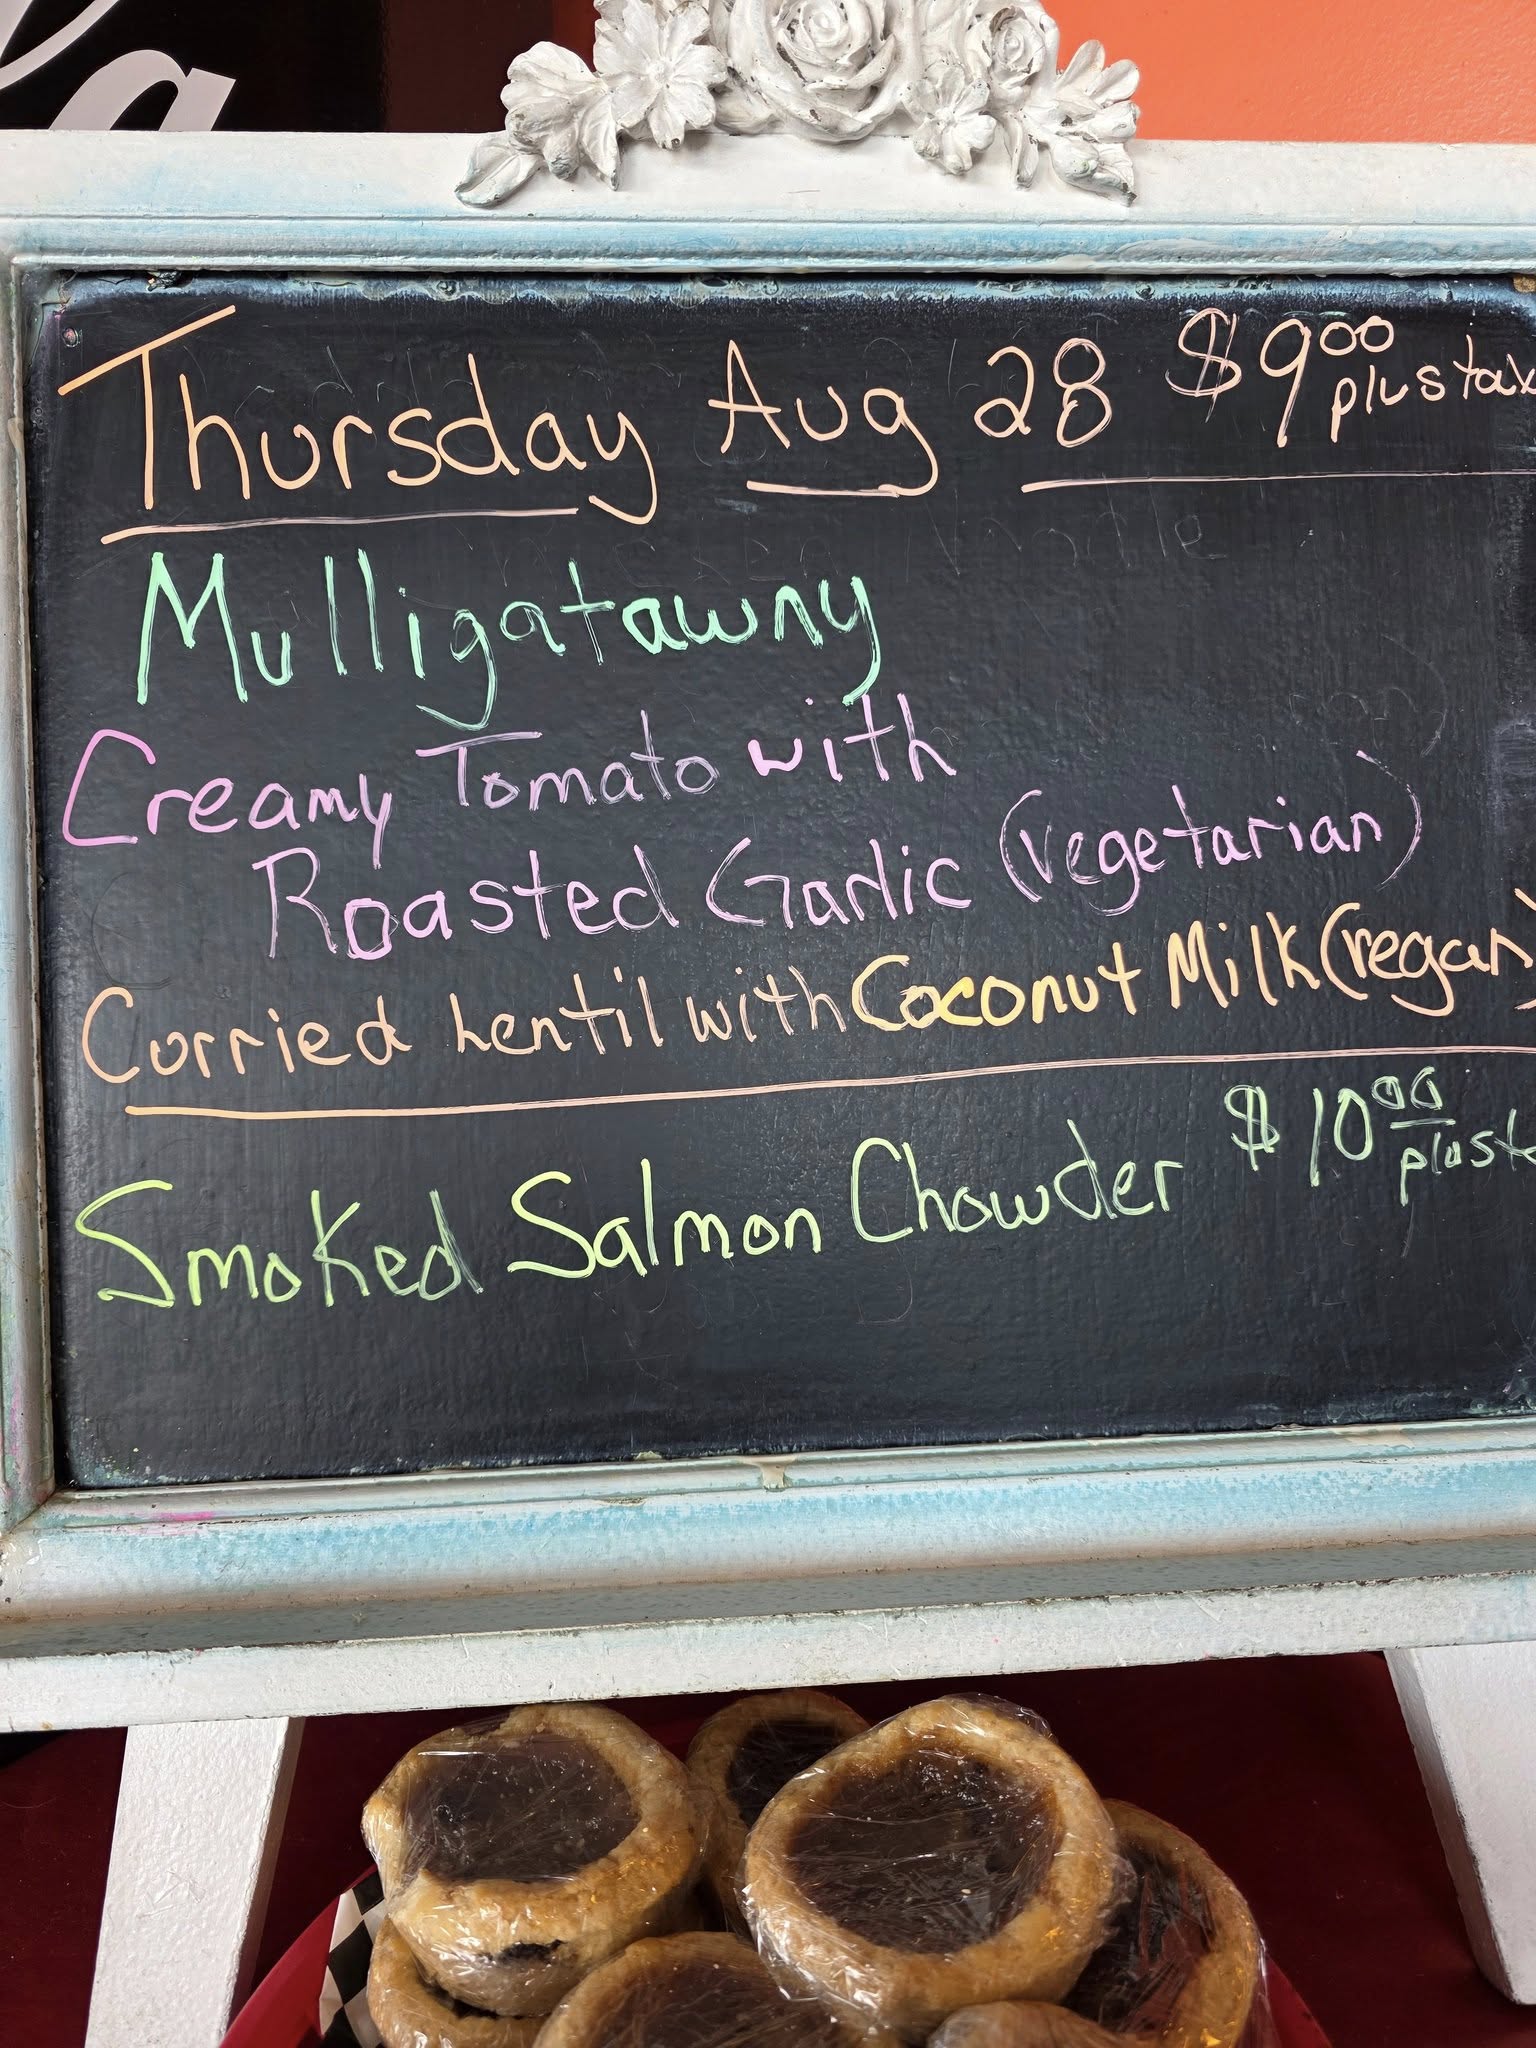 Thursday Aug 28 $9.00 plus tax
Mulligatawny
Creamy Tomato with
Roasted Garlic (vegetarian)
Curried Lentil with Coconut Milk (vegan)
Smoked Salmon Chowder $10.00 plus